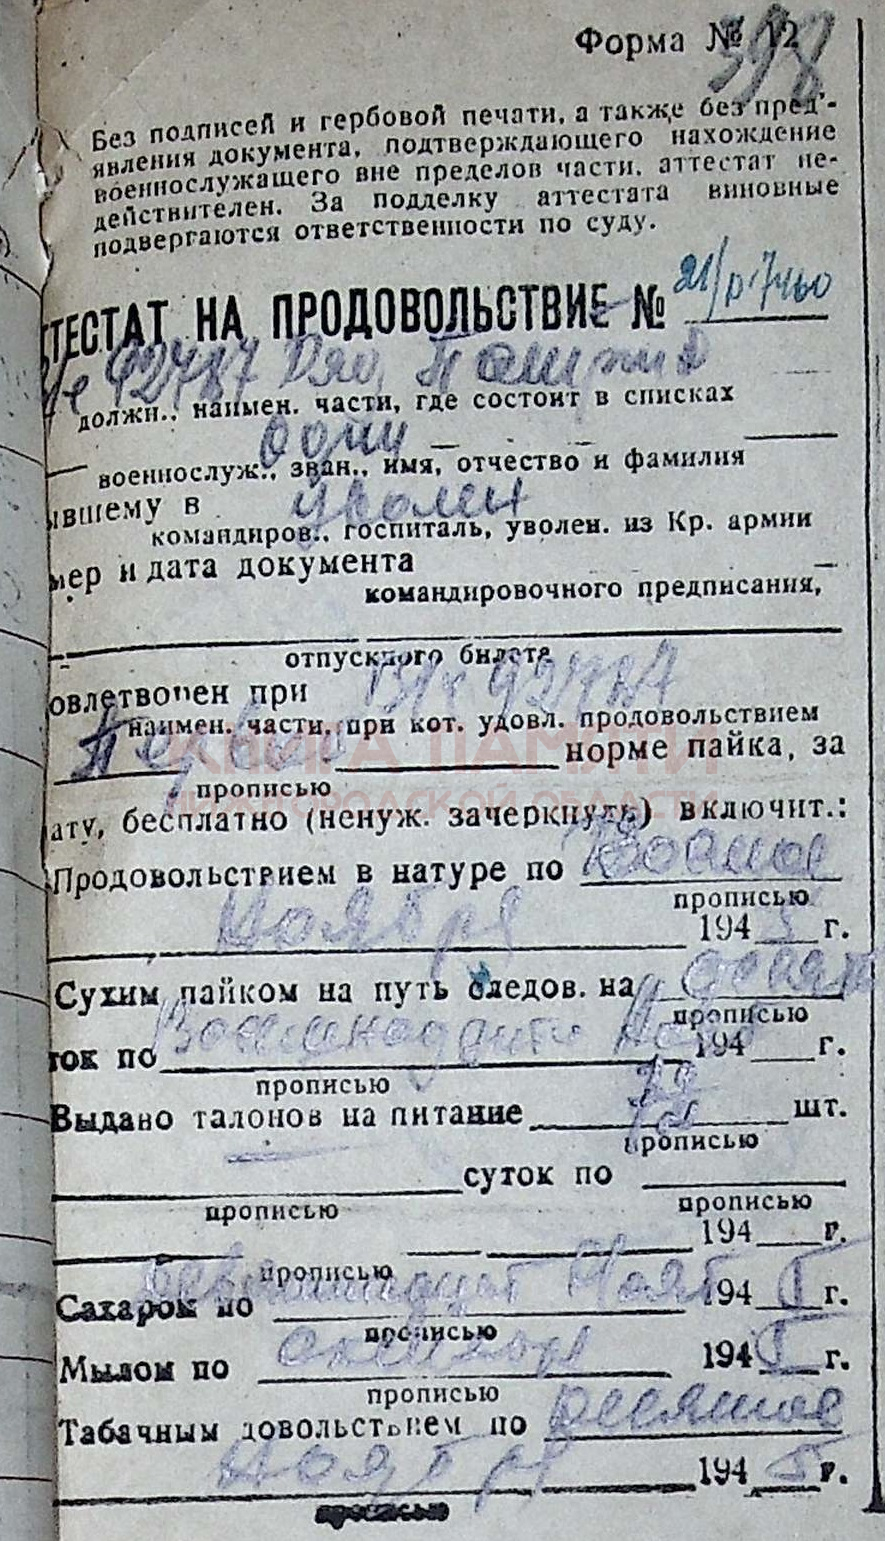 Форма № 12
398
Без подписей и гербовой печати, а также без пред'-
явления документа, подтверждающего нахождение
военнослужащего вне пределов части, аттестат не-
действителен. За подделку аттестата виновные
подвергаются ответственности по суду.
ТЕСТАТ НА ПРОДОВОЛЬСТВИЕ № 21/
92787
должн., наимен. части, где состоит в списках
одну
военнослуж., зван., имя, отчество и фамилия
ывшему в уволен
командиров., госпиталь, уволен. из Кр. армии
мер и дата документа
командировочного предписания,
отпускного билета
овлетворен при 92787
наимен. части, при кот. удовл. продовольствием
Первой норме пайка, за
прописью
КНИГА ПАМЯТИ
НИЖЕГОРОДСКОЙ ОБЛАСТИ
ату, бесплатно (ненуж. зачеркнуть) включит.:
Продовольствием в натуре по
прописью
Ноября 194 5 г.
Сухим пайком на путь следов. на
прописью
ток по 194 г.
прописью
Выдано талонов на питание шт.
прописью
суток по
прописью прописью
194 г.
прописью
Сахаром по 194 5 г.
прописью
Мылом по октябрь 194 5 г.
прописью
Табачным довольствием по десятое
ноября 194 5 г.
прописью